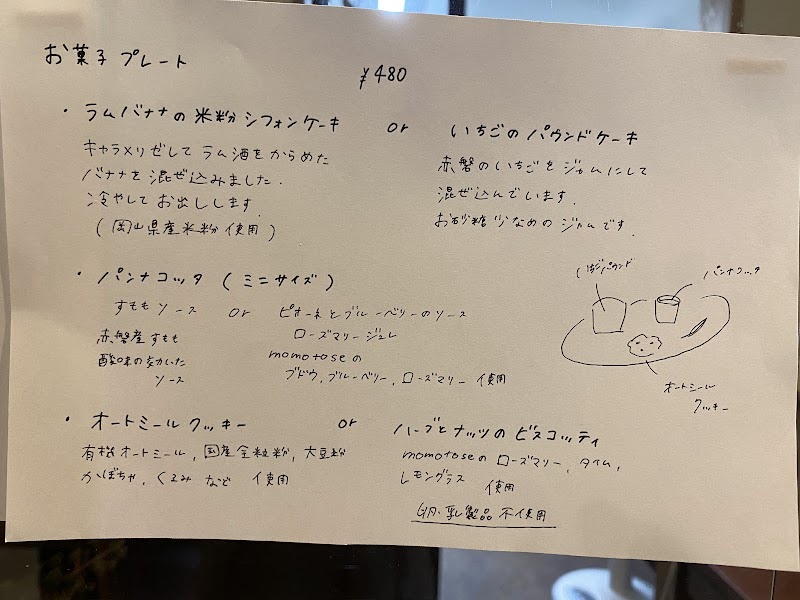 お菓子プレート
¥480
・ラムバナナの米粉シフォンケーキ or いちごのパウンドケーキ
キャラメリゼしてラム酒をからめた
バナナを混ぜ込みました.
冷やしてお出しします.
(岡山県産米粉使用)
赤磐のいちごをジャムにして
混ぜ込んでいます.
お砂糖少なめのジャムです.
・パンナコッタ(ミニサイズ)
すももソース or ピオーネとブルーベリーのソース
ローズマリージュレ
赤磐産すもも
酸味の効いた
ソース
momotoseの
ブドウ,ブルーベリー,ローズマリー使用
いちごパウンド
パンナコッタ
オートミール
クッキー
・オートミールクッキー or ハーブとナッツのビスコッティ
有機オートミール,国産全粒粉,大豆粉
かぼちゃ,くるみなど使用
momotoseのローズマリー,タイム,
レモングラス使用
卵・乳製品不使用